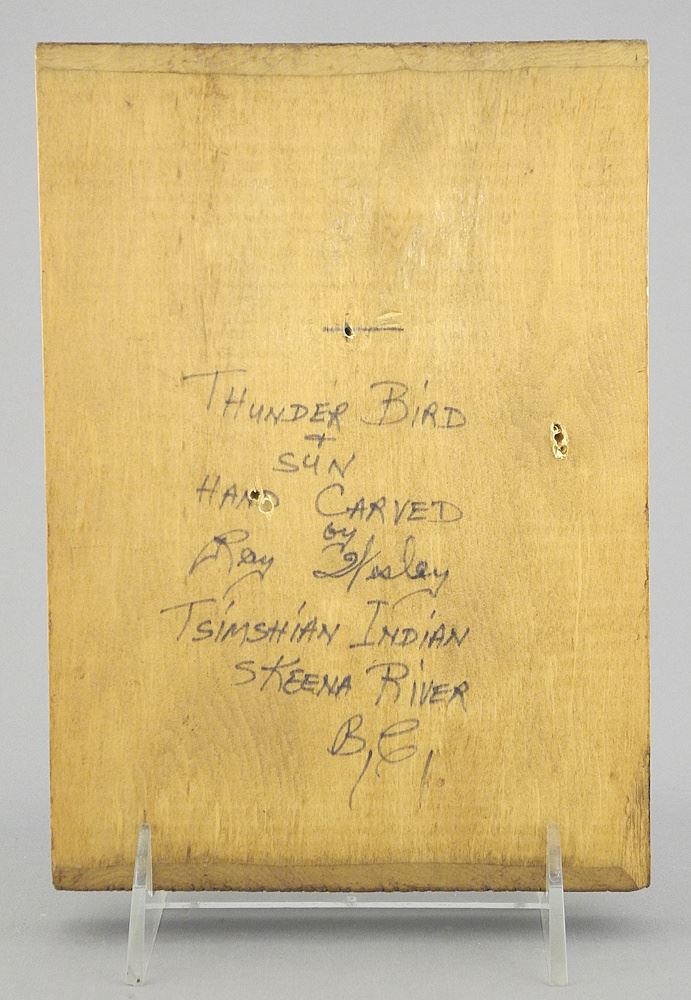 THUNDER BIRD
+
SUN
HAND CARVED
by
Ray Wesley
TSIMSHIAN INDIAN
SKEENA RIVER
B,C,